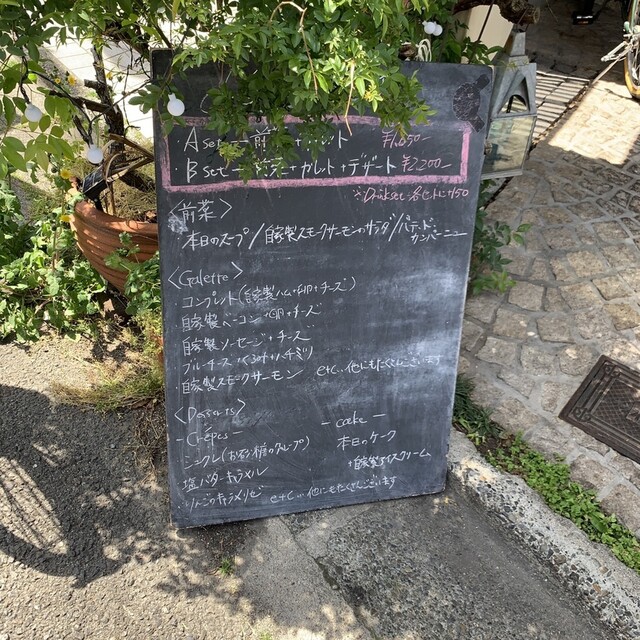 A set ー 前 + レット ¥1,650-
B set ー + ガレット + デザート ¥2200-
※Drink set 各セットに+450
<前菜>
・本日のスープ/自家製スモークサーモンのサラダ/パテ・ド・カンパーニュ
<Galette>
・コンプレット(自家製ハム+卵+チーズ)
・自家製ベーコン+卵+チーズ
・自家製ソーセージ+チーズ
・ブルーチーズ+くるみ+ハチミツ
・自家製スモークサーモン etc... 他にもたくさんございます
<Desserts>
- Crêpes -
・シンプル(お砂糖のクレープ)
・塩バターキャラメル
・りんごのキャラメリゼ
- cake -
本日のケーク
+自家製アイスクリーム
etc... 他にもたくさんございます